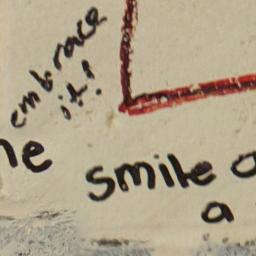 embrace
it!
smile
a